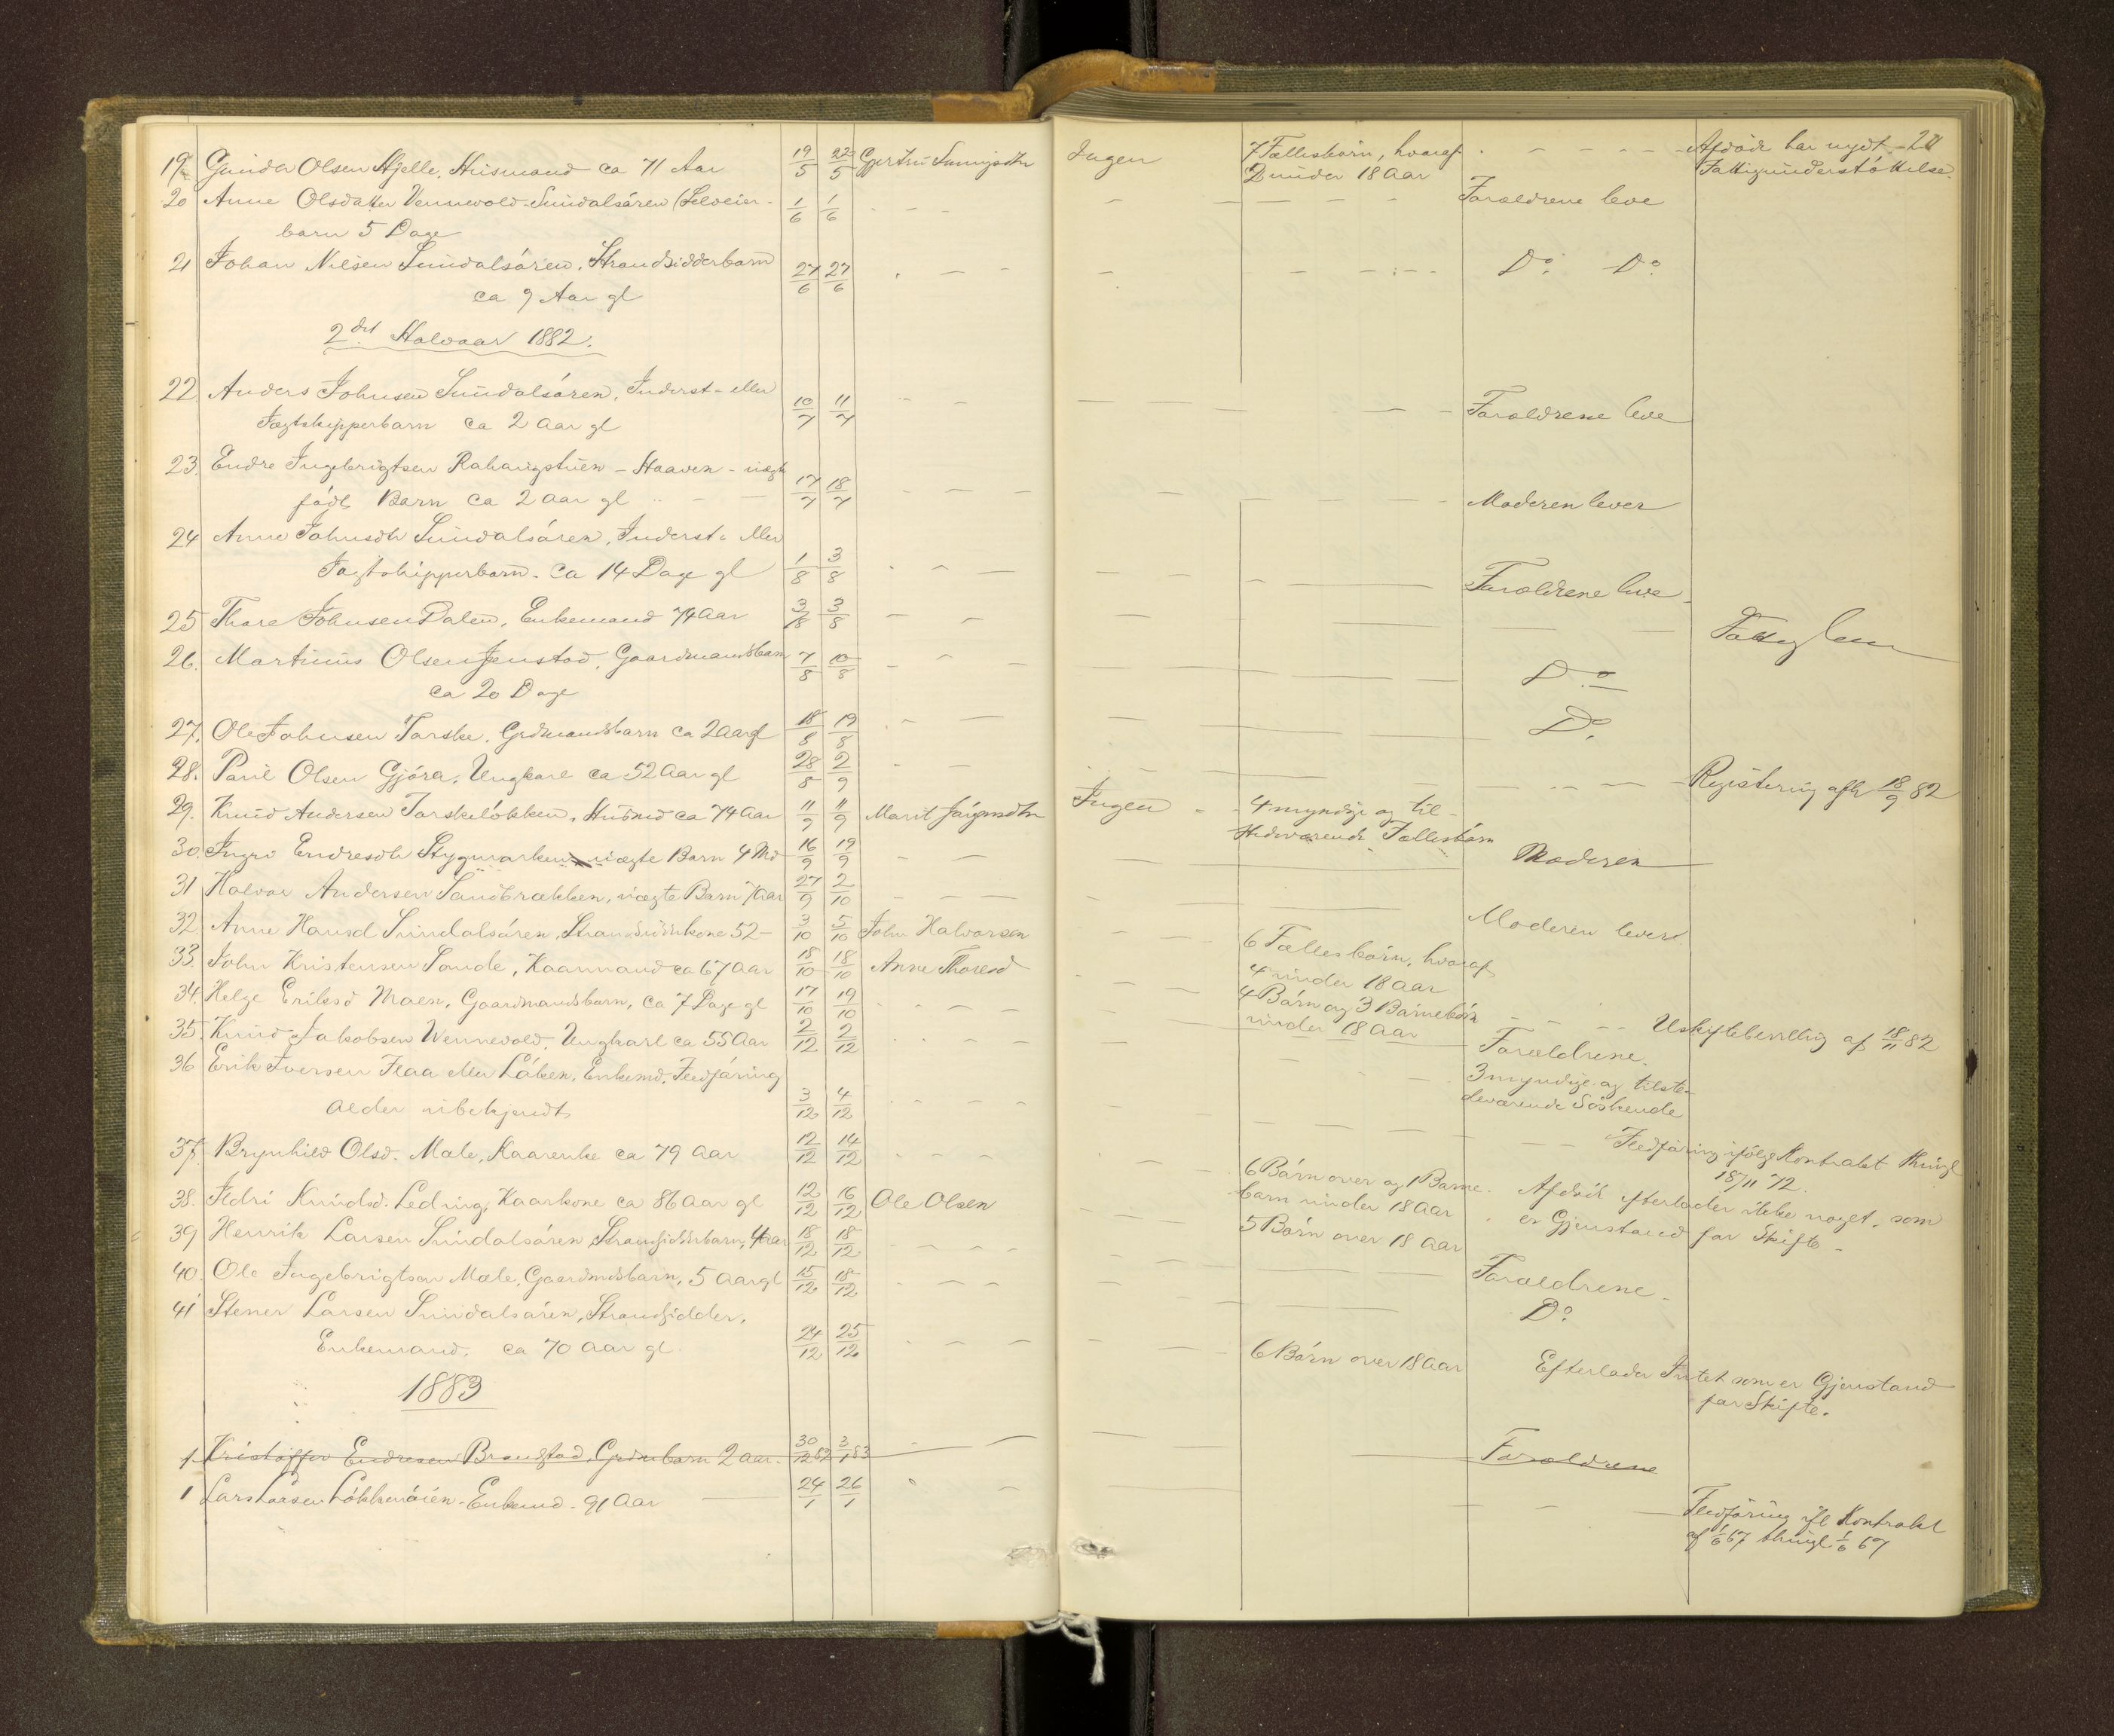 19 Gunder Olsen Hjelle, Husmand ca 71 Aar 19/5 22/5 Ingen 7 Fællesbørn, hvoraf Afdøde har nydt
2 under 18 Aar Fattigunderstøttelse.
20 Anne Olsdatter Vennevold - Sundalsøren (Selveier- 1/6 1/6 Forældrene leve
barn 5 Dage
21 Johan Nilsen Sundalsøren, Strandsidderbarn 27/6 27/6 Do. Do
ca 9 Aar gl
2det Halvaar 1882.
22 Anders Johnsen Sundalsøren, Inderst- eller
Jægtskipperbarn ca 2 Aar gl 10/7 11/7 Forældrene leve
23. Endre Ingebrigtsen - Haaven - uægte
født Barn ca 2 Aar gl 17/7 18/7 Moderen lever
24 Anne Johnsdtr Sundalsøren, Inderst- eller
Jagtskipperbarn. Ca 14 Dage gl 1/8 3/8 Forældrene leve
25 Thore Johnsen Dalen, Enkemand 74 Aar 3/8 3/8
26. Martinus Olsen Jenstad, Gaardmandsbarn 7/8 10/8 Do
ca 20 Dage
27. Ole Johnsen Torske, Grdmandsbarn ca 2 Aar gl 18/8 19/8 Do.
28. Paul Olsen Gjøra, Ungkare ca 52 Aar gl 28/8 2/9 Registering afh 18/9 82
29. Knud Andersen Torskeløkken, Husmd ca 74 Aar 11/9 11/9 Marit Ingen 4 myndige og til-
stedeværende Fællesbørn
30. Ingri Endresdtr Stygmarken uægte Barn 4 Md 16/9 19/9 Moderen
31 Halvor Andersen Sandbrækken, uægte Barn 7 Aar 27/9 2/10 Moderen lever
32. Anne Hansd Sundalsøren, Strandsidderkone 52 - 3/10 5/10 John Halvorsen 6 Fællesbørn, hvoraf
4 under 18 Aar
33. John Kristensen Sande, Kaarmand ca 67 Aar 18/10 18/10 Anne Thoresd 4 Børn og 3 Børnebørn
under 18 Aar Uskiftebevilling af 18/11 82
34. Helge Eriksd Moen, Gaardmandsbarn, ca 7 Dage gl 17/10 19/10 Forældrene.
35. Knud Jakobsen Vennevold, Ungkarl ca 55 Aar 2/12 2/12 3 myndige og tilste-
deværende Søskende
36 Erik Iversen Flaa eller Løken, Enkemd, Fledføring
alder ubekjendt 3/12 4/12 Fledføring ifølge Kontrakt thingl
18/11 72.
37. Brynhild Olsd. Male, Kaarenke ca 79 Aar 12/12 14/12 6 Børn over og 1 Barne-
barn under 18 Aar Afdøde efterlader ikke noget, som
er Gjenstand for Skifte -
38. Ildri Knudsd. Leding, Kaarkone ca 86 Aar gl 12/12 16/12 Ole Olsen 5 Børn over 18 Aar
39 Henrik Larsen Sundalsøren, Strandsidderbarn, 4 Aar 18/12 18/12 Forældrene
40. Ole Ingebrigtsen Male, Gaardmdsbarn, 5 Aar gl 15/12 18/12 Do
41 Stener Larsen Sundalsøren, Strandsidder,
Enkemand, ca 70 Aar gl. 24/12 25/12 6 Børn over 18 Aar Efterlader Intet som er Gjenstand
for Skifte.
1883
1 Kristoffer Endresen Brandstad, Grdmbarn 2 Aar. 30/12 82 3/1 83 Forældrene
1 Lars Larsen Løkkemoien - Enkemd - 91 Aar 24/1 26/1 Fledføring ifl Kontrakt
af 1/6 67 thingl 1/6 67